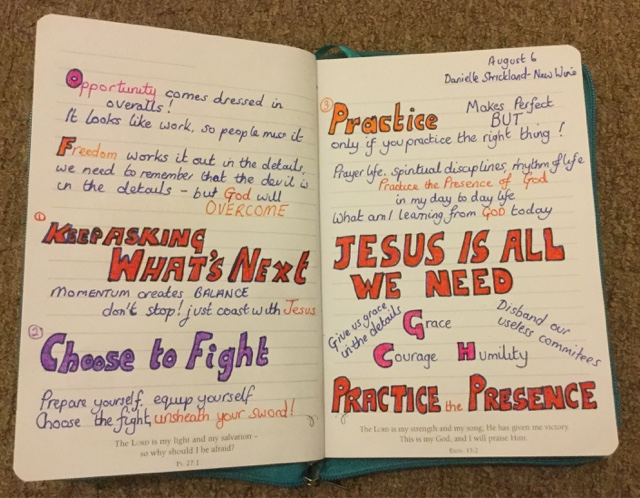 Opportunity comes dressed in
overalls!
It looks like work, so people miss it
Freedom works it out in the details,
we need to remember that the devil is
in the details - but God will
OVERCOME
① KEEP ASKING
WHAT'S NEXT
MOMENTUM creates BALANCE
don't stop! just coast with Jesus
② Choose to Fight
Prepare yourself, equip yourself
Choose the fight, unsheath your sword!
The LORD is my light and my salvation –
so why should I be afraid?
Ps. 27:1
August 6
Danielle Strickland - New Wine
③ Practice Makes Perfect
BUT
only if you practice the right thing!
Prayer life, spiritual disciplines, rhythm of life
Practice the Presence of God
in my day to day life
What am I learning from GOD today
JESUS IS ALL
WE NEED
Give us grace
in the details
Grace
Courage Humility
Disband our
useless commitees
PRACTICE the PRESENCE
The LORD is my strength and my song; He has given me victory.
This is my God, and I will praise Him.
Exod. 15:2